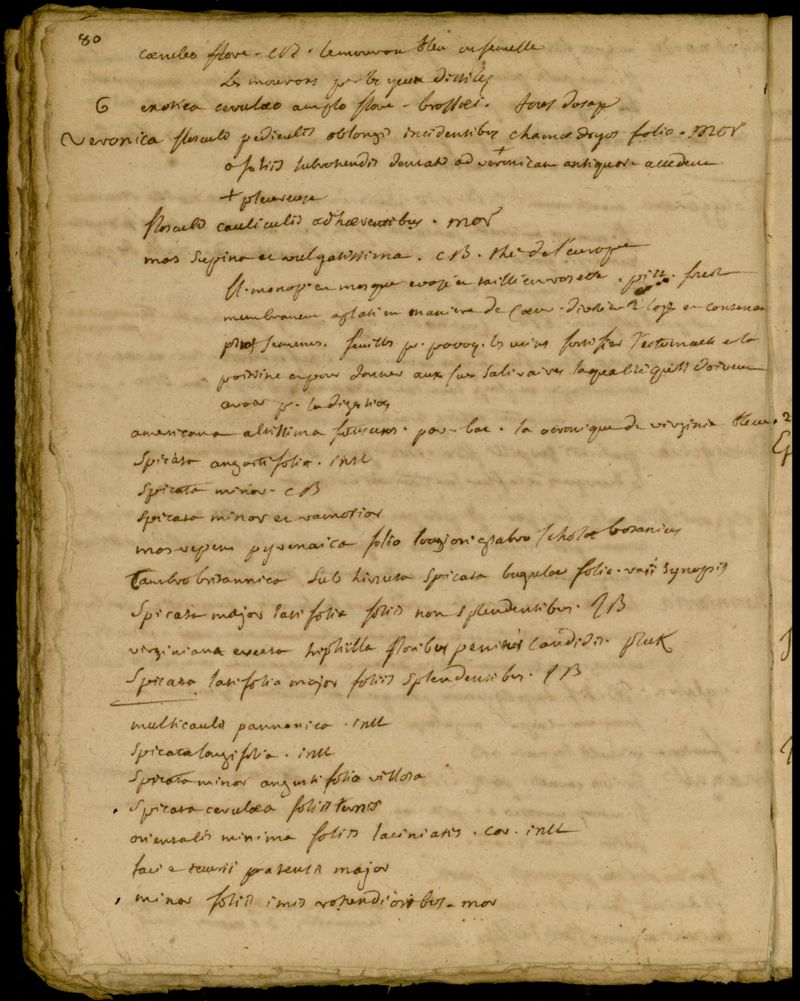 80
cœruleo flore - CB. le mouron bleu ou femelle
Les mourons pr les yeux distilés
6 exotica cœruleo amplo flore - brossæi.
Veronica flosculis pediculis oblongis incidentibus chamædryos folio - mor
a foliis subrotundis dentatis ad veronicam antiquor accedens
+ pleurreuse
flosculis cauliculis adhærentibus. mor
mas supina et vulgatissima. CB. thé de l'europe
fl. monop. en rosette. pist. fruit
membraneux aplati en maniere de Cœur divisé en 2 loges et contenant
plus. semences. feuilles pr fortifier l'estomack et la
poitrine et pour donner aux sucs salivaires la qualité qu'ils doivent
avoir pr la digestion
americana altissima. la veronique de virginie bleue. 2
Spicata angustifolia. inst
Spicata minor - CB
Spicata minor et ramosior
mas repens pyrenaica folio longiori glabro scholæ botanices
Cambrobritannica sub hirsuta spicata bugulæ folio. raii synopsis
Spicata major latifolia foliis non splendentibus. IB
virginiana excelsa triphilla floribus candidis. pluk
Spicata latifolia major foliis splendentibus. IB
multicaulis pannonica. inst
Spicata longifolia. inst
Spicata minor angustifolia villosa
. Spicata cerulæa foliis ternis
orientalis minima foliis laciniatis. cor. inst
facie teucrii pratensis major
, minor foliis imis rotundioribus - mor